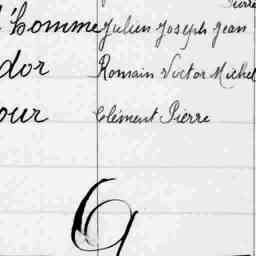 Pierre
homme Julien Joseph Jean
dor Romain Victor Michel
our Clément Pierre